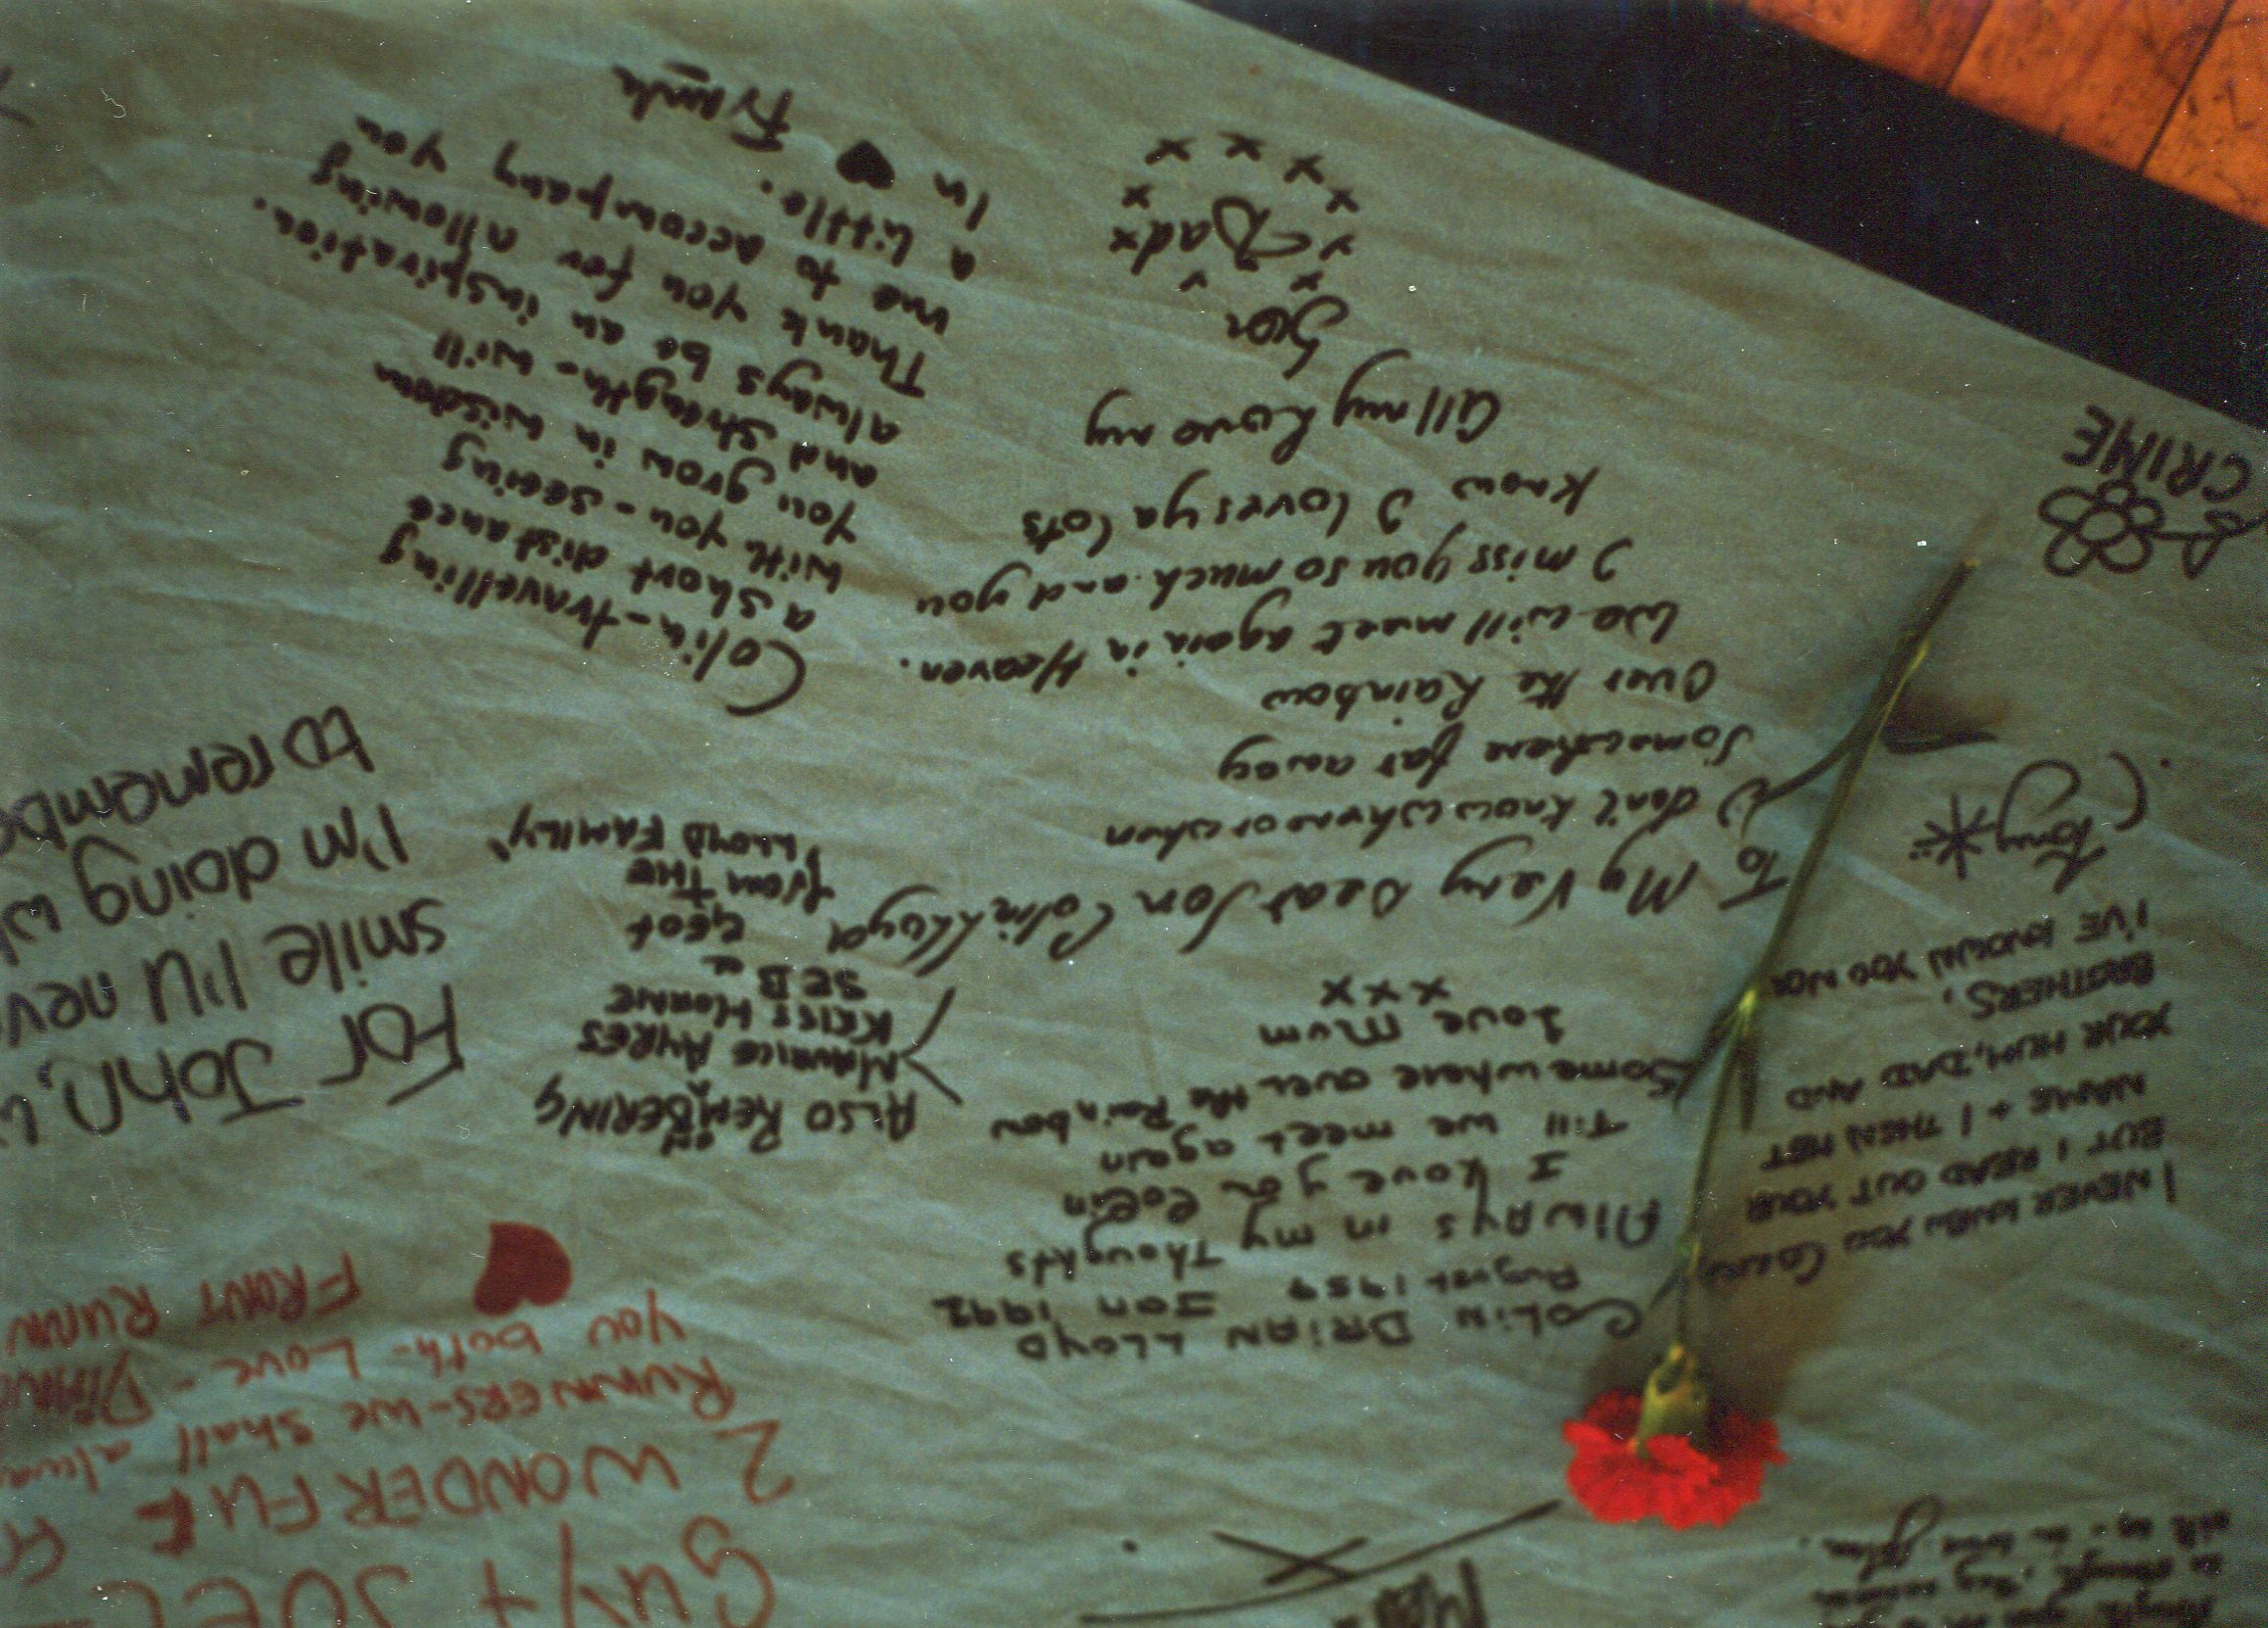 in
all my love
Guy + JOEL -
2 WONDERFUL
RUNNERS - we shall alwa
you both - Love - DIANE
FRONT RUNN
I NEVER KNEW YOU COLIN,
BUT I READ OUT YOUR
NAME + I THEN MET
YOUR MUM, DAD AND
BROTHERS,
I'VE KNOWN YOU NOW
Tony
COLIN BRIAN LLOYD
August 1959 JAN 1992
AlWAYS in my Thoughts
I Love you Colin
Till we meet again
Somewhere over the Rainbow
Love Mum
x x x
ALSO REMBERING
EM
MAURICE AYRES
KRISS HORNE
SEB &
GEOF
from THE
LLOYD FAMILY
For John,
smile I'll nev
I'm doing w
to rememb
To My Very Dear Son Colin Lloyd
I don't know where or when
Somewhere far away
Over the Rainbow
We will meet again in Heaven.
I miss you so much and you
know I loves ya lots
All my Love my
Son
Dad x
x x x x x x x x
Colin - travelling
a short distance
with you - seeing
you grow in wisdom
and strength - will
always be an inspiration.
Thank you for allowing
me to accompany you
a little.
In ♥
Frank
CRINE